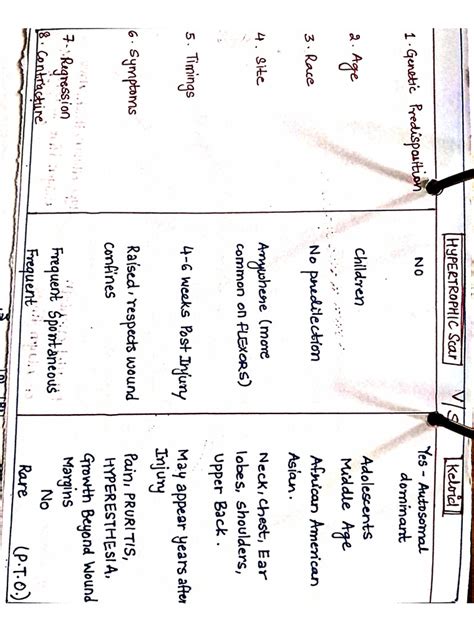 HYPERTROPHIC Scar V/S Keloid
1. Genetic Predisposition NO Yes - Autosomal
dominant
2. Age Children Adolescents
Middle Age
3. Race No predilection African American
Asian.
4. Site Anywhere (more Neck, chest, Ear
common on FLEXORS) lobes, shoulders,
Upper Back.
5. Timings 4-6 weeks Post Injury May appear years after
Injury
6. Symptoms Raised, respects wound Pain, PRURITIS,
confines HYPERESTHESIA.
Growth Beyond Wound
Margins
7. Regression Frequent Spontaneous No
8. Contracture Frequent Rare
(P.T.O.)